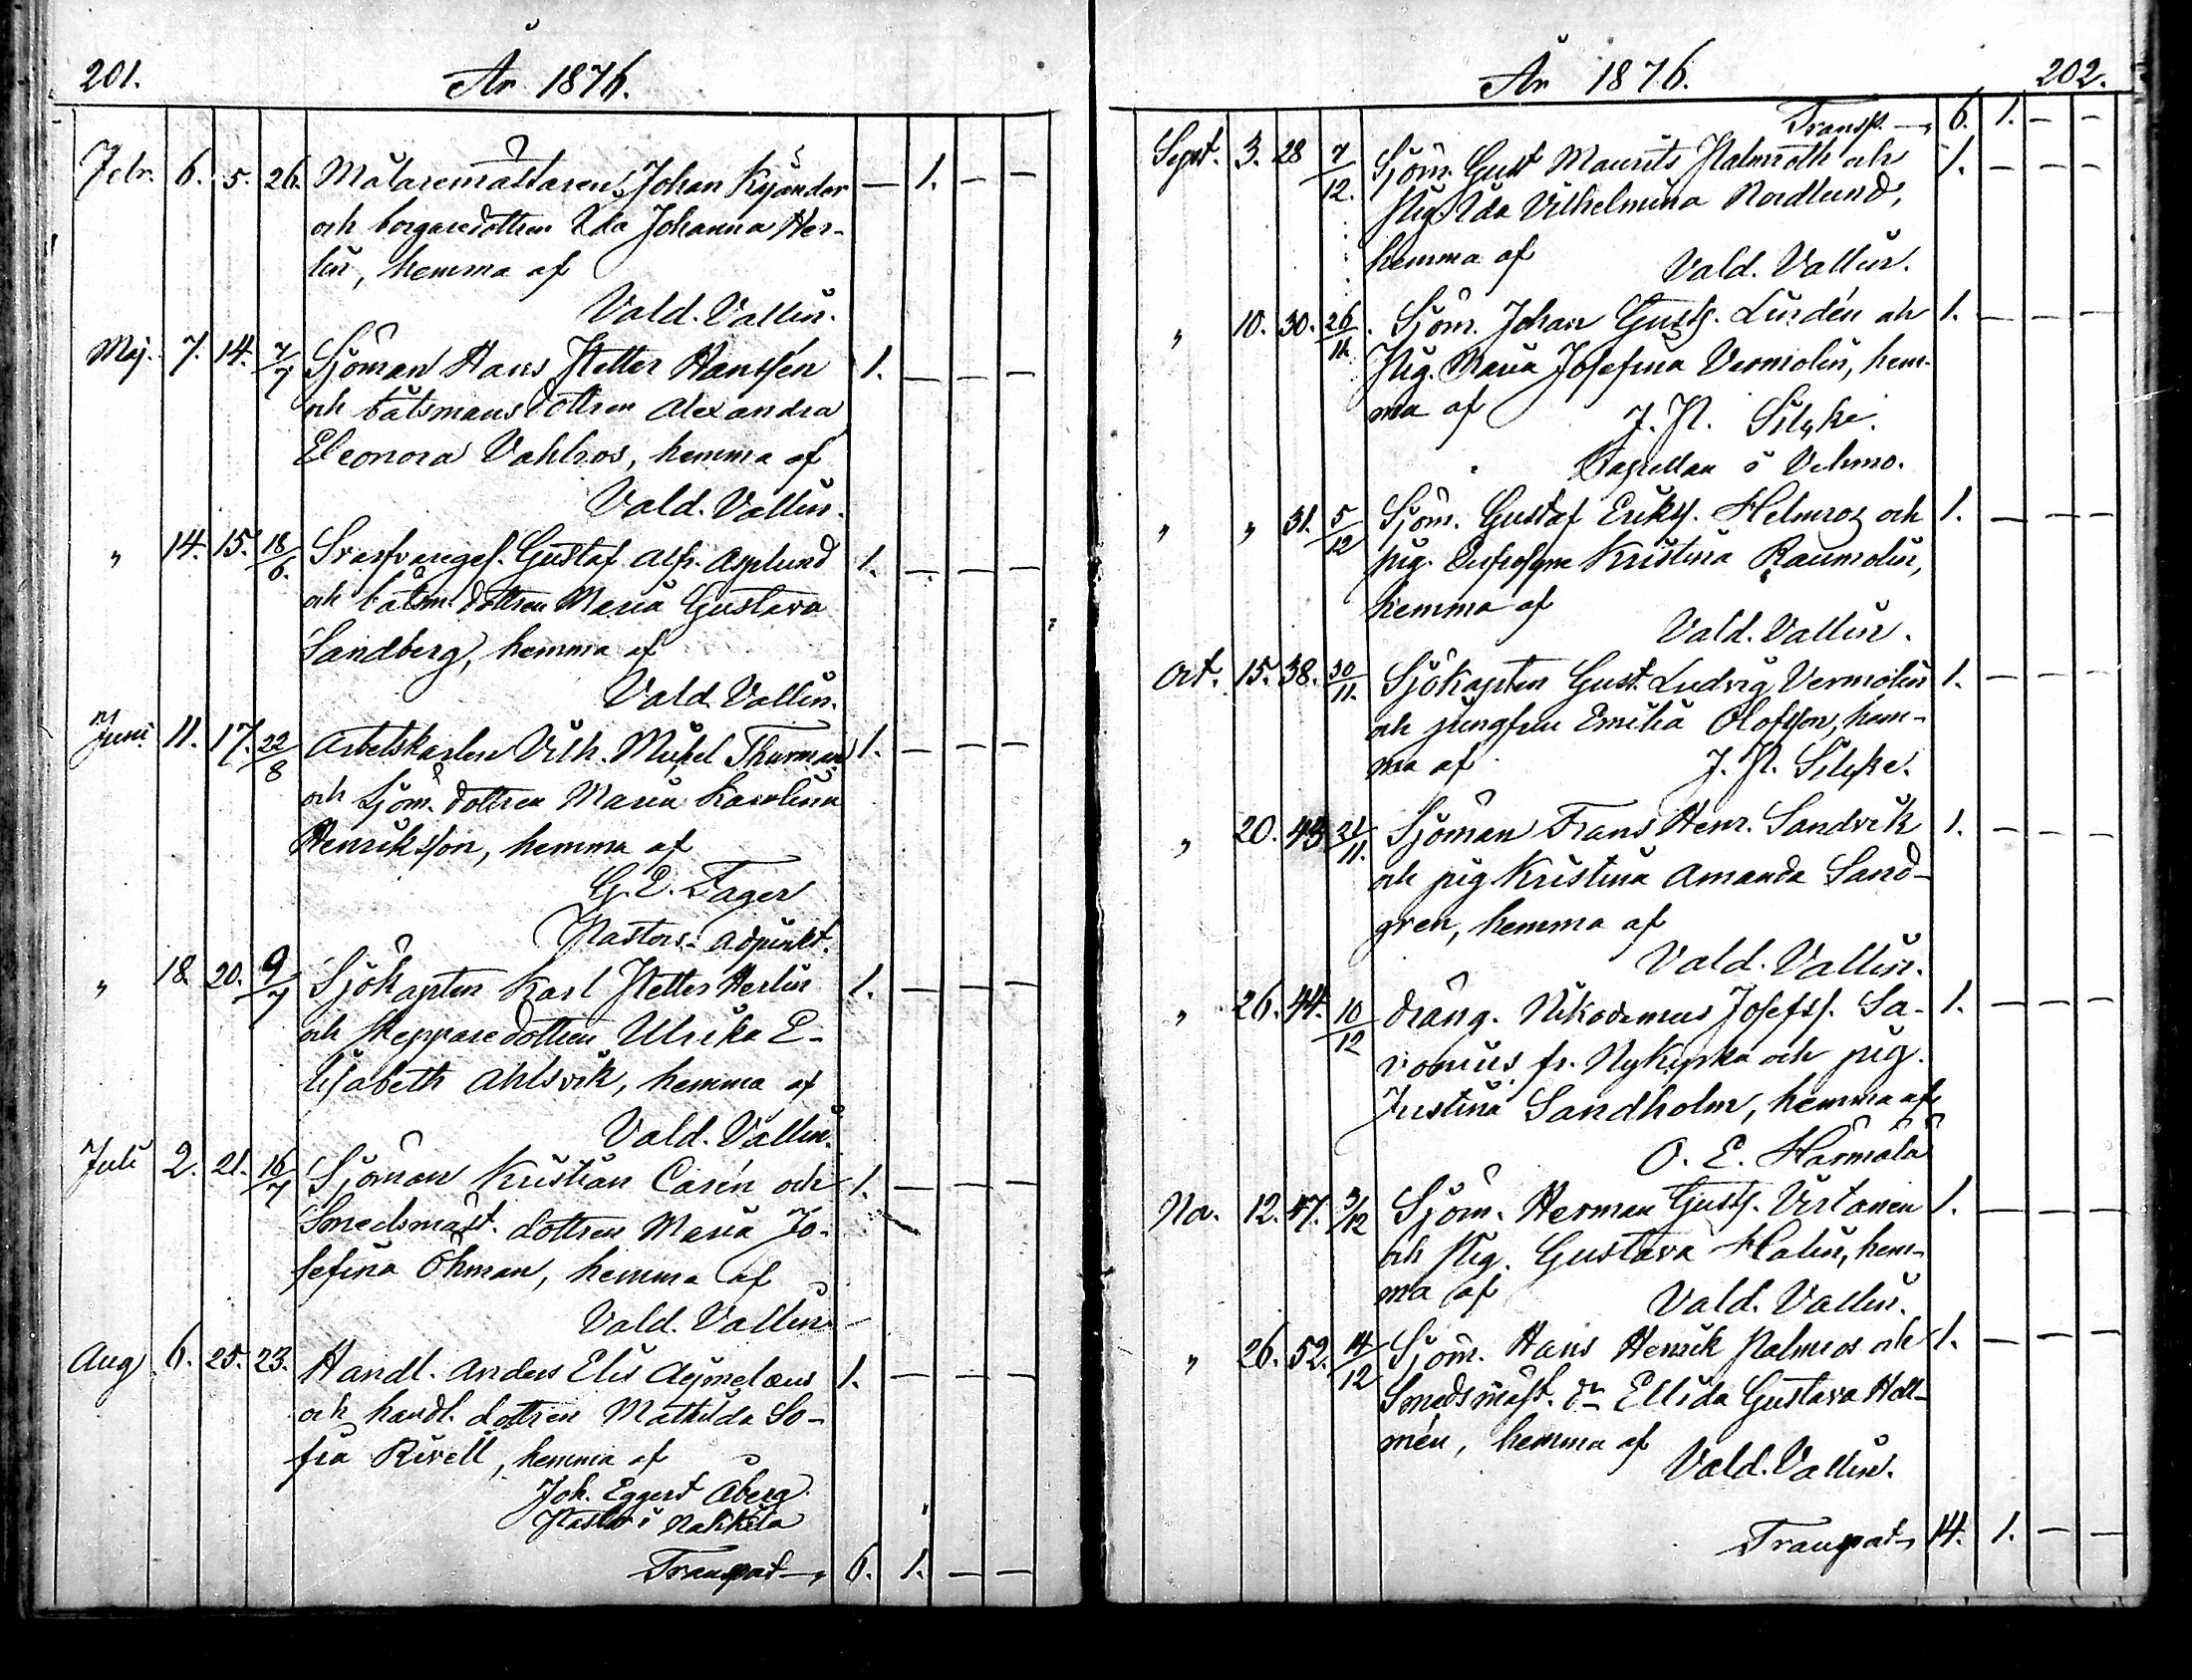 201. År 1876.
Febr. 6. 5. 26. Målaremästaren Johan Kyander — 1. — —
och borgaredottren Ida Johanna Her-
lin, hemma af
Vald. Vallin.
Maj. 7. 14. 7/7 Sjöman Hans Petter Hanssén 1. — — —
och båtsmansdottren Alexandra
Eleonora Vahlros, hemma af
Vald. Vallin.
„ 14. 15. 18/6. Svarfvareges. Gustaf Alfr. Asplund 1. — — —
och båtsm. dottren Maria Gustava
Sandberg, hemma af
Vald. Vallin.
Juni 11. 17. 22/8 Arbetskarlen Vilh. Mikel Thurman 1. — — —
och Sjöm. dottren Maria Karolina
Henriksson, hemma af
G. E. Fager
Pastors-adjunkt.
„ 18. 20. 9/7 Sjökapten Karl Petter Herlin 1. — — —
och skepparedottren Ulrika E-
lisabeth Ahlsvik, hemma af
Vald. Vallin.
Juli 2. 21. 16/7 Sjöman Kristian Carén och 1. — — —
Smedsmäst. dottren Maria Jo-
sefina Öhman, hemma af
Vald. Vallin
Aug 6. 25. 23. Handl. Anders Elis Aejmelæus 1. — — —
och handl. dottren Mathilda So-
fia Rivell, hemma af
Joh. Eggert Åberg
Pastor i Nakkila
Transpot 6. 1. — —
År 1876. 202.
Transp. 6. 1. — —
Sept. 3. 28 7/12. Sjöm. Gust Maurits Palmroth och 1. — — —
Pig. Ida Vilhelmina Nordlund,
hemma af
Vald. Vallin.
„ 10. 30. 26/11. Sjöm. Johan Gustfs. Lindén och 1. — — —
Pig. Maria Josefina Vermolin, hem-
ma af
J. N. Silyke.
Kapellan i Vehmo.
„ „ 31. 5/12 Sjöm. Gustaf Erikss. Helmros och 1. — — —
pig. Eufrosyne Kristina Raumolin,
hemma af
Vald. Vallin.
Oct. 15. 38. 30/11. Sjökapten Gust. Ludvig Vermolin 1. — — —
och jungfrun Emilia Olofsson, hem-
ma af
J. N. Silyke.
„ 20. 43 21/11. Sjöman Frans Henr. Sandvik 1. — — —
och pig Kristina Amanda Sand-
gren, hemma af
Vald. Vallin.
„ 26. 44. 10/12 dräng. Nikodemus Josefss. Sa- 1. — — —
vonius fr. Nykyrka och pig.
Justina Sandholm, hemma af
O. E. Härmälä
No. 12. 47. 3/12 Sjöm. Herman Gustfs. Virtanen 1. — — —
och Pig. Gustava Halin, hem-
ma af
Vald. Vallin.
„ 26. 52. 14/12 Sjöm. Hans Henrik Palmros och 1. — — —
Smedsmäst. dn Ellida Gustava Hell-
mén, hemma af
Vald. Vallin.
Transpot 14. 1. — —